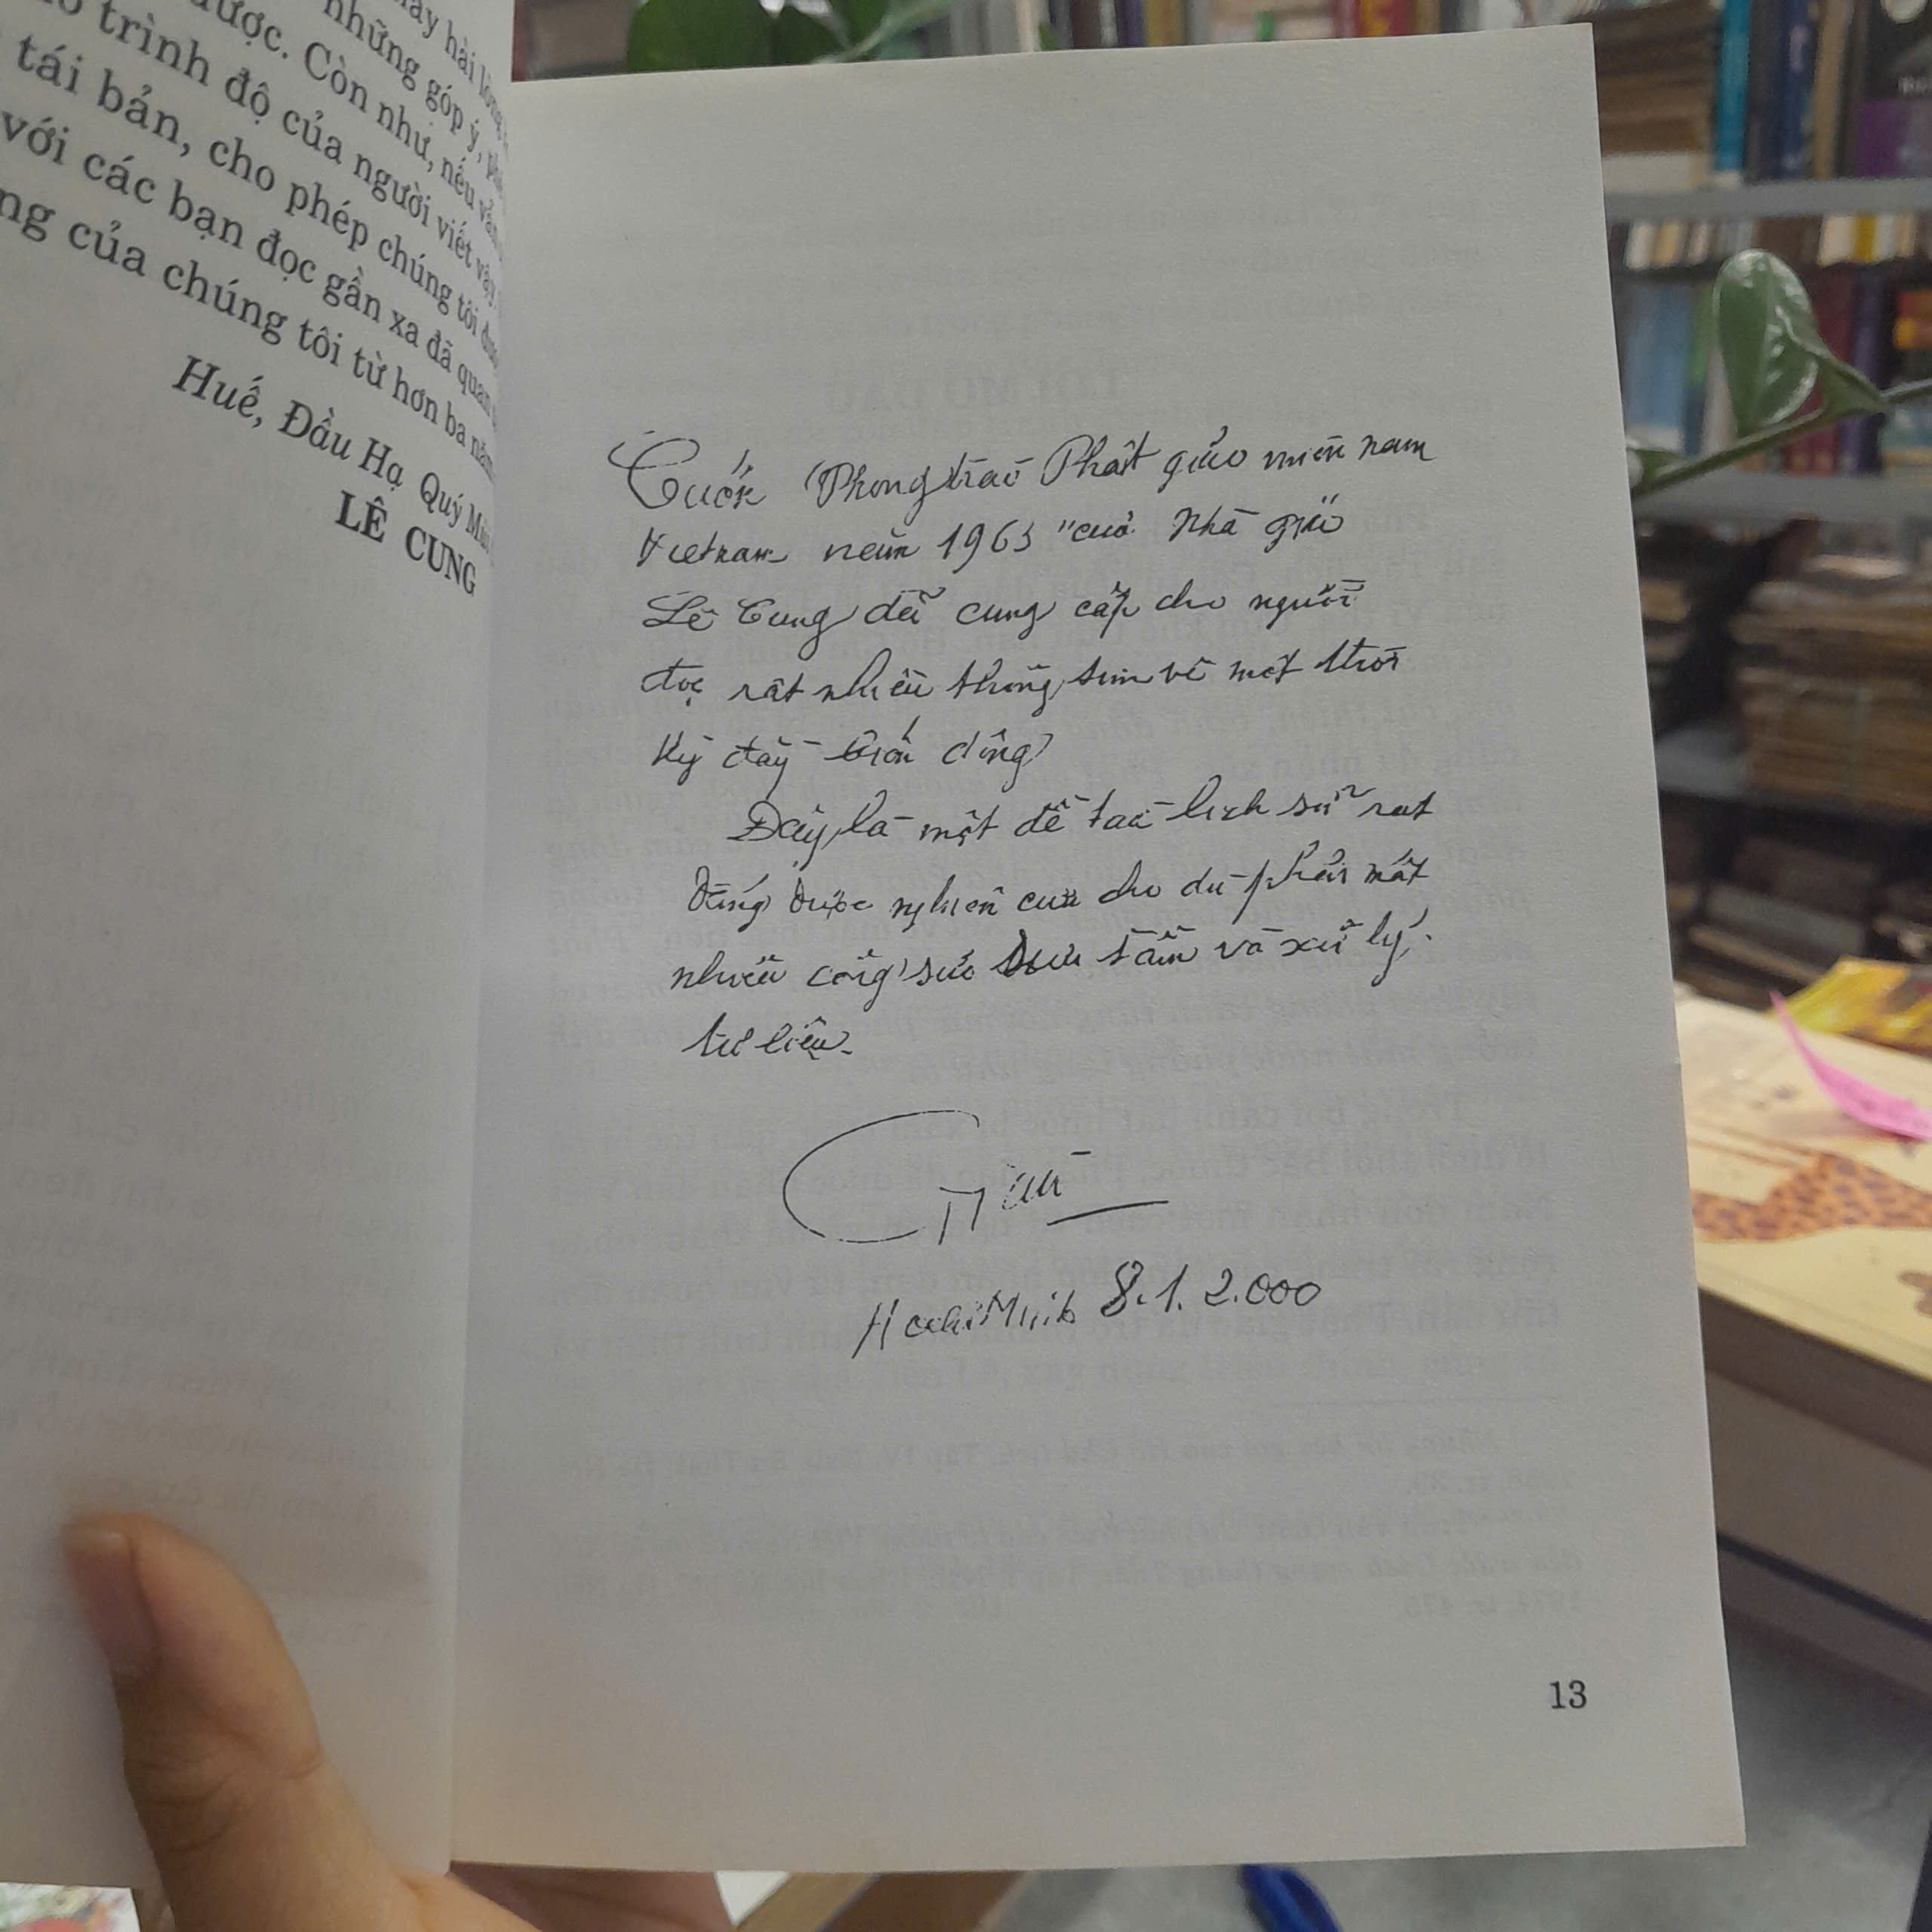 hài lòng
những góp ý,
được. Còn như, nếu
trình độ của người viết vậy
tái bản, cho phép chúng tôi được
với các bạn đọc gần xa đã quan
ng của chúng tôi từ hơn ba năm
Huế, Đầu Hạ Quý Mùi
LÊ CUNG
Cuốn "Phong trào Phật giáo miền nam
Vietnam năm 1963" của Nhà giáo
Lê Cung đã cung cấp cho người
đọc rất nhiều thông tin về một thời
kỳ đầy biến động
Đây là một đề tài lịch sử rất
đáng được nghiên cứu cho dù phải mất
nhiều công sức sưu tầm và xử lý
tư liệu.
HochiMinh 8.1.2.000
13